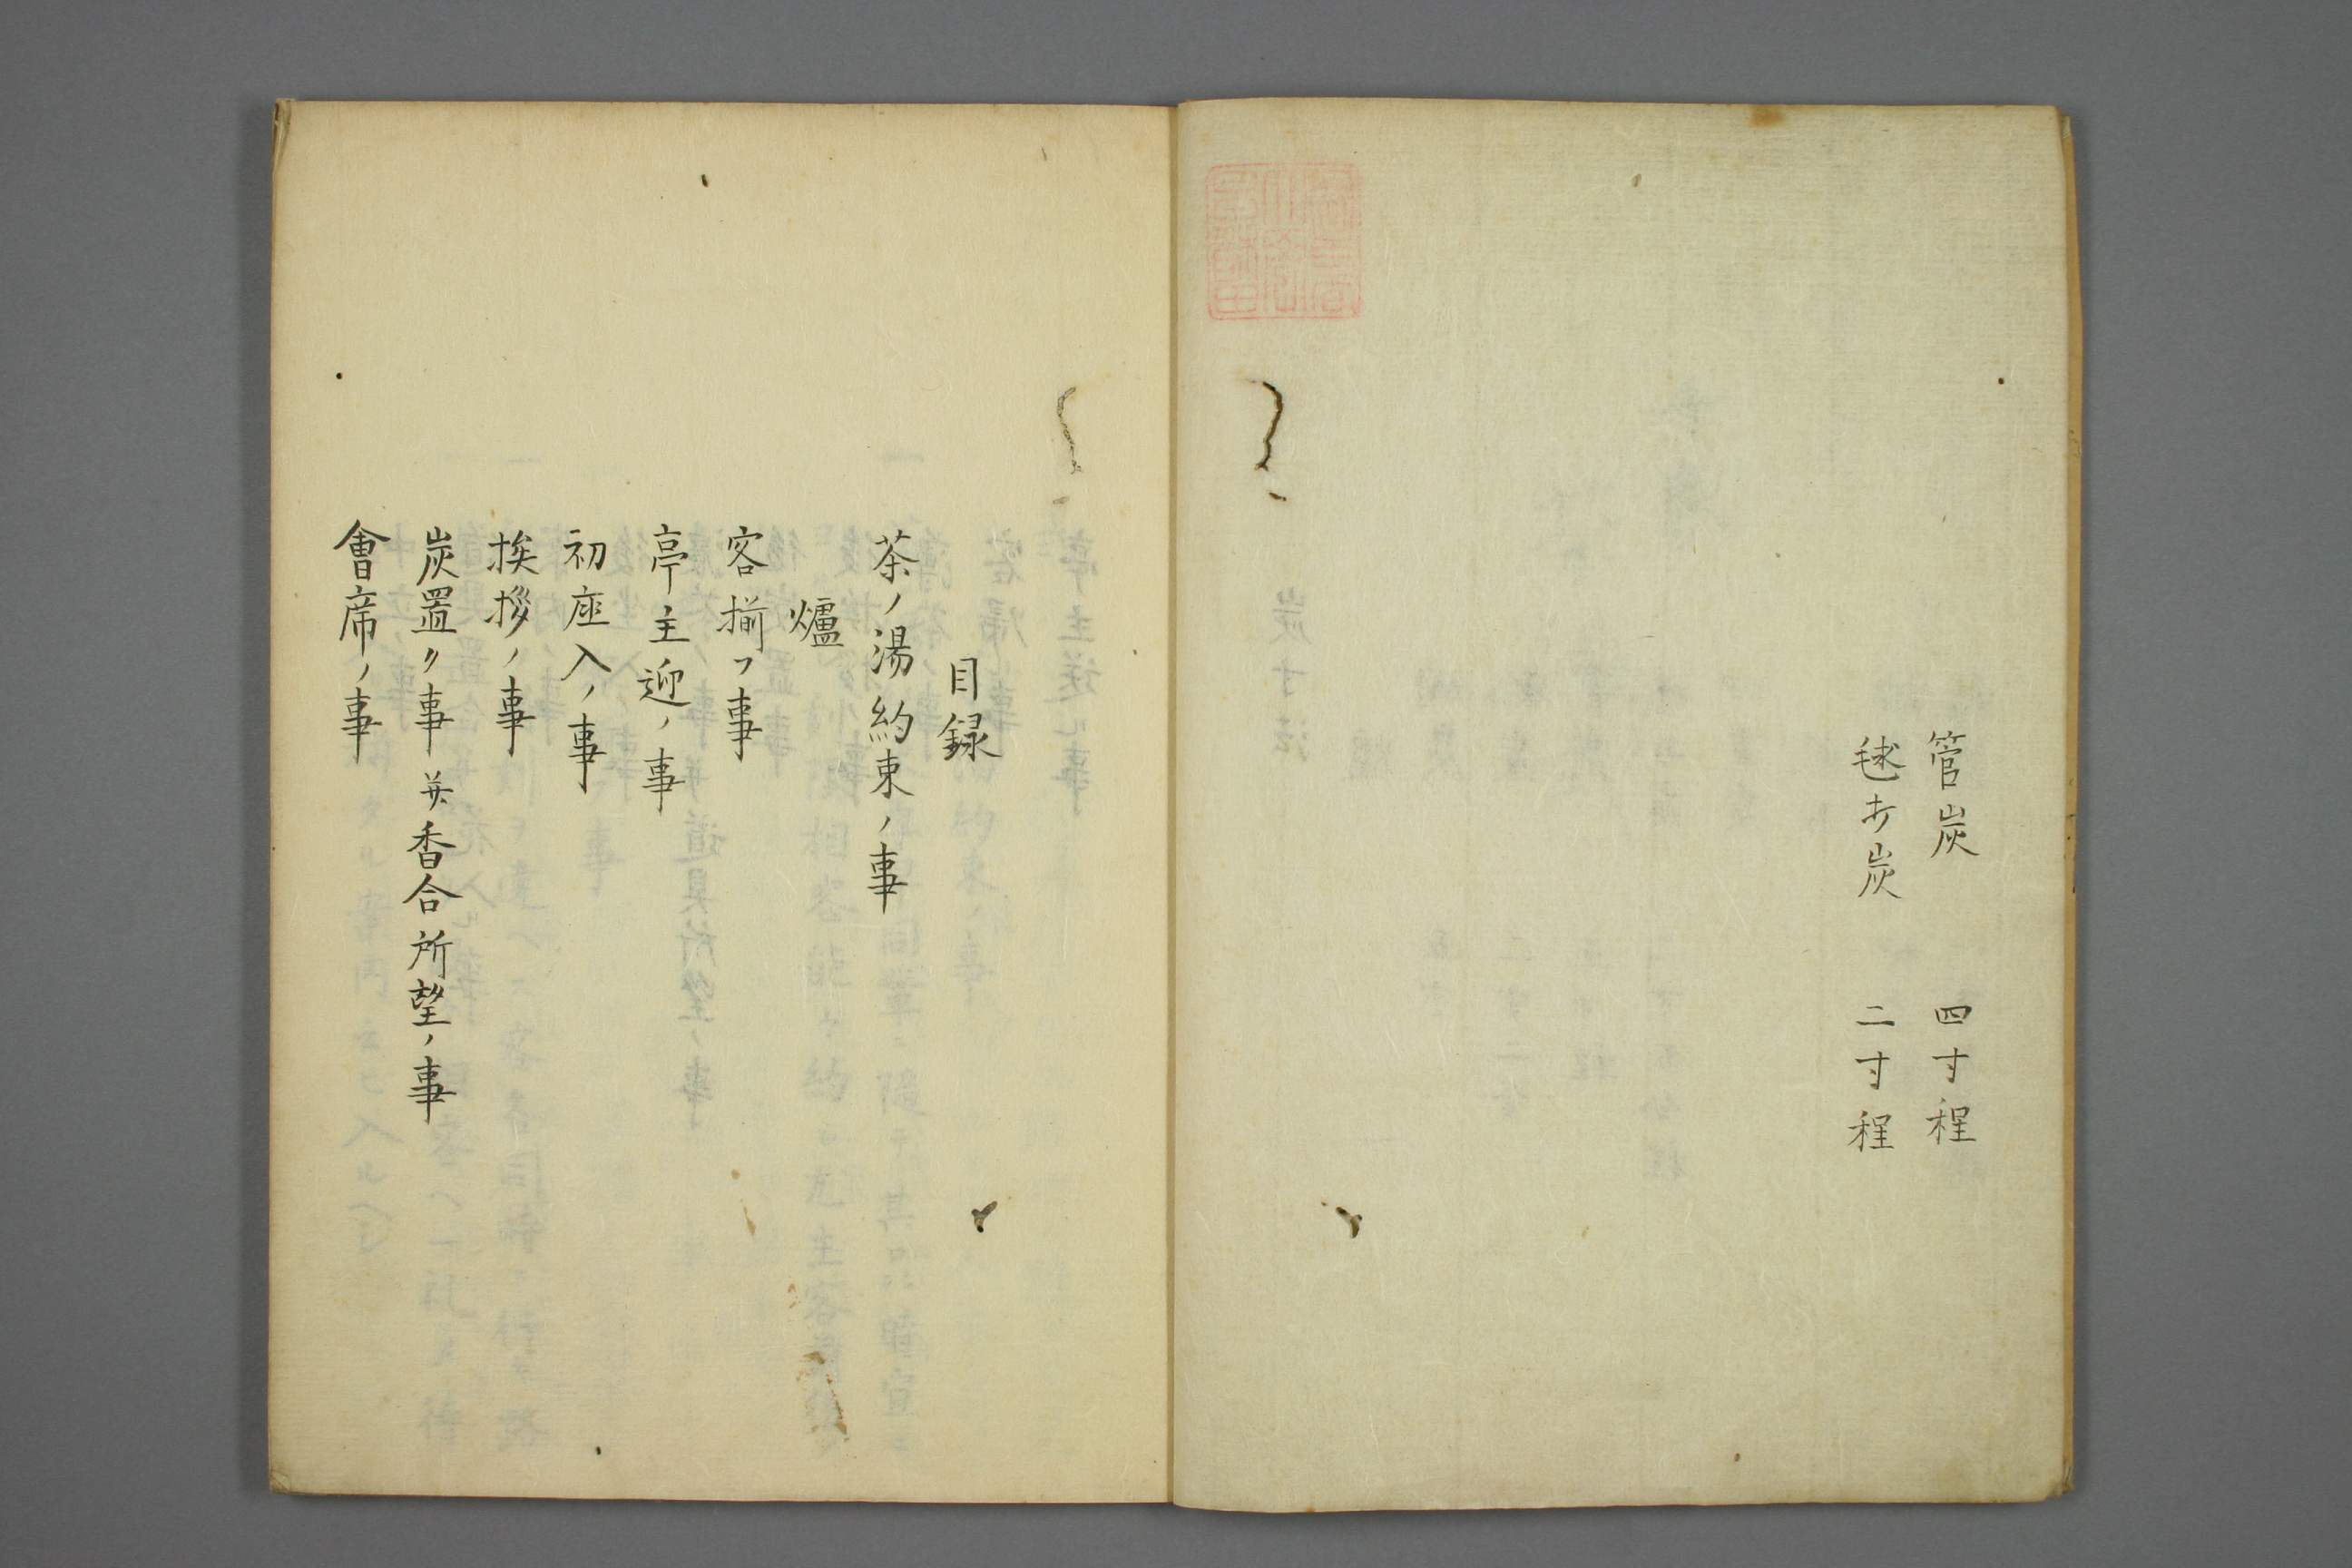 管炭 四寸程
毬打炭 二寸程
目録
茶ノ湯約束ノ事
爐
客揃フ事
亭主迎ノ事
初座入ノ事
挨拶ノ事
炭置ク事并香合所望ノ事
會席ノ事